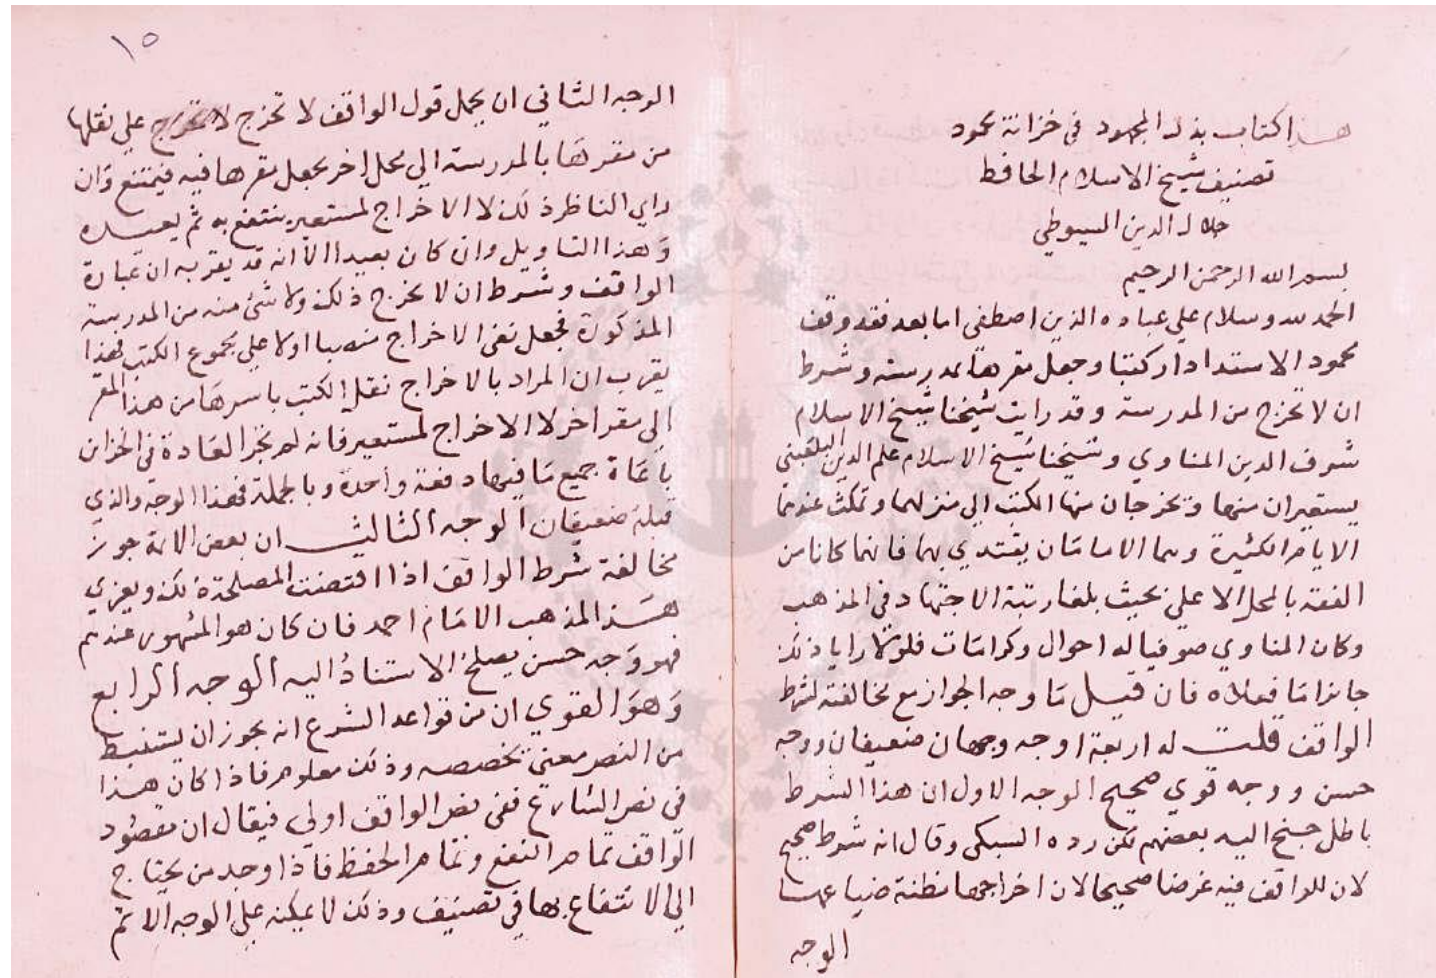 هذا كتاب بذل المجهود في خزانة محمود
تصنيف شيخ الاسلام الحافظ
جلال الدين السيوطي
بسم الله الرحمن الرحيم
الحمد لله وسلام علي عباده الذين اصطفي اما بعد فقد وقف
محمود الاستدادار كتبا وجعل مقرها بمدرسته وشرط
ان لا تخرج من المدرسة وقد رايت شيخنا شيخ الاسلام
شرف الدين المناوي وشيخنا شيخ الاسلام علم الدين البلقيني
يستعيران منها ويخرجان منها الكتب الي منزلهما وتمكث عندهما
الايام الكثيرة وهما الامامان يقتدي بهما فانهما كانا من
الفقه بالمحل الاعلي بحيث بلغا رتبة الاجتهاد في المذهب
وكان المناوي صوفيا له احوال وكرامات فلولا رايا ذلك
جائزا ما فعلاه فان قيل ما وجه الجواز مع مخالفته لشرط
الواقف قلت له اربعة اوجه وجهان ضعيفان ووجه
حسن ووجه قوي صحيح الوجه الاول ان هذا الشرط
باطل جنح اليه بعضهم لكن رده السبكي وقال انه شرط صحيح
لان للواقف فيه غرضا صحيحا لان اخراجها مظنة ضياعها
الوجه
١٥
الوجه الثاني ان يحمل قول الواقف لا تخرج علي نقلها
من مقرها بالمدرسة الي محل اخر يجعل مقرها فيه فيمتنع وان
راي الناظر ذلك لا الاخراج لمستعير ينتفع به ثم يعيده
وهذا التاويل وان كان بعيدا الا انه قد يقربه ان عبارة
الواقف وشرط ان لا يخرج ذلك ولا شئ منه من المدرسة
المذكورة فجعل نفي الاخراج منصبا اولا علي مجموع الكتب فهذا
يقرب ان المراد بالاخراج نقل الكتب باسرها من هذا المقر
الي مقر اخر لا الاخراج لمستعير فانه لم تجر العادة في الخزائن
باعارة جميع ما فيها دفعة واحدة وبالجملة فهذا الوجه والذي
قبله ضعيفان الوجه الثالث ان بعض الائمة جوز
مخالفة شرط الواقف اذا اقتضت المصلحة ذلك ويعزي
هذا لمذهب الامام احمد فان كان هو المشهور عندهم
فهو وجه حسن يصلح الاستناد اليه الوجه الرابع
وهو القوي ان من قواعد الشرع انه يجوز ان يستنبط
من النص معني يخصصه وذلك معلوم فاذا كان هذا
في نص الشارع ففي نص الواقف اولي فيقال ان مقصود
الواقف تمام النفع وتمام الحفظ فاذا وجد من يحتاج
الي الانتفاع بها في تصنيف وذلك لا يمكنه علي الوجه الاتم